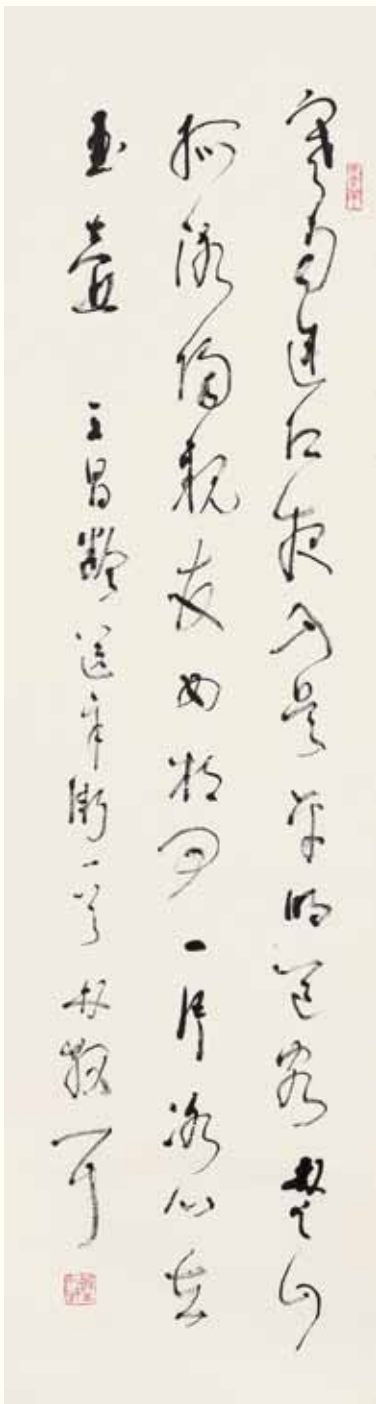 寒雨連江夜入吳平明送客楚山
孤洛陽親友如相問一片冰心在
玉壺 王昌齡送辛漸一首 林散耳